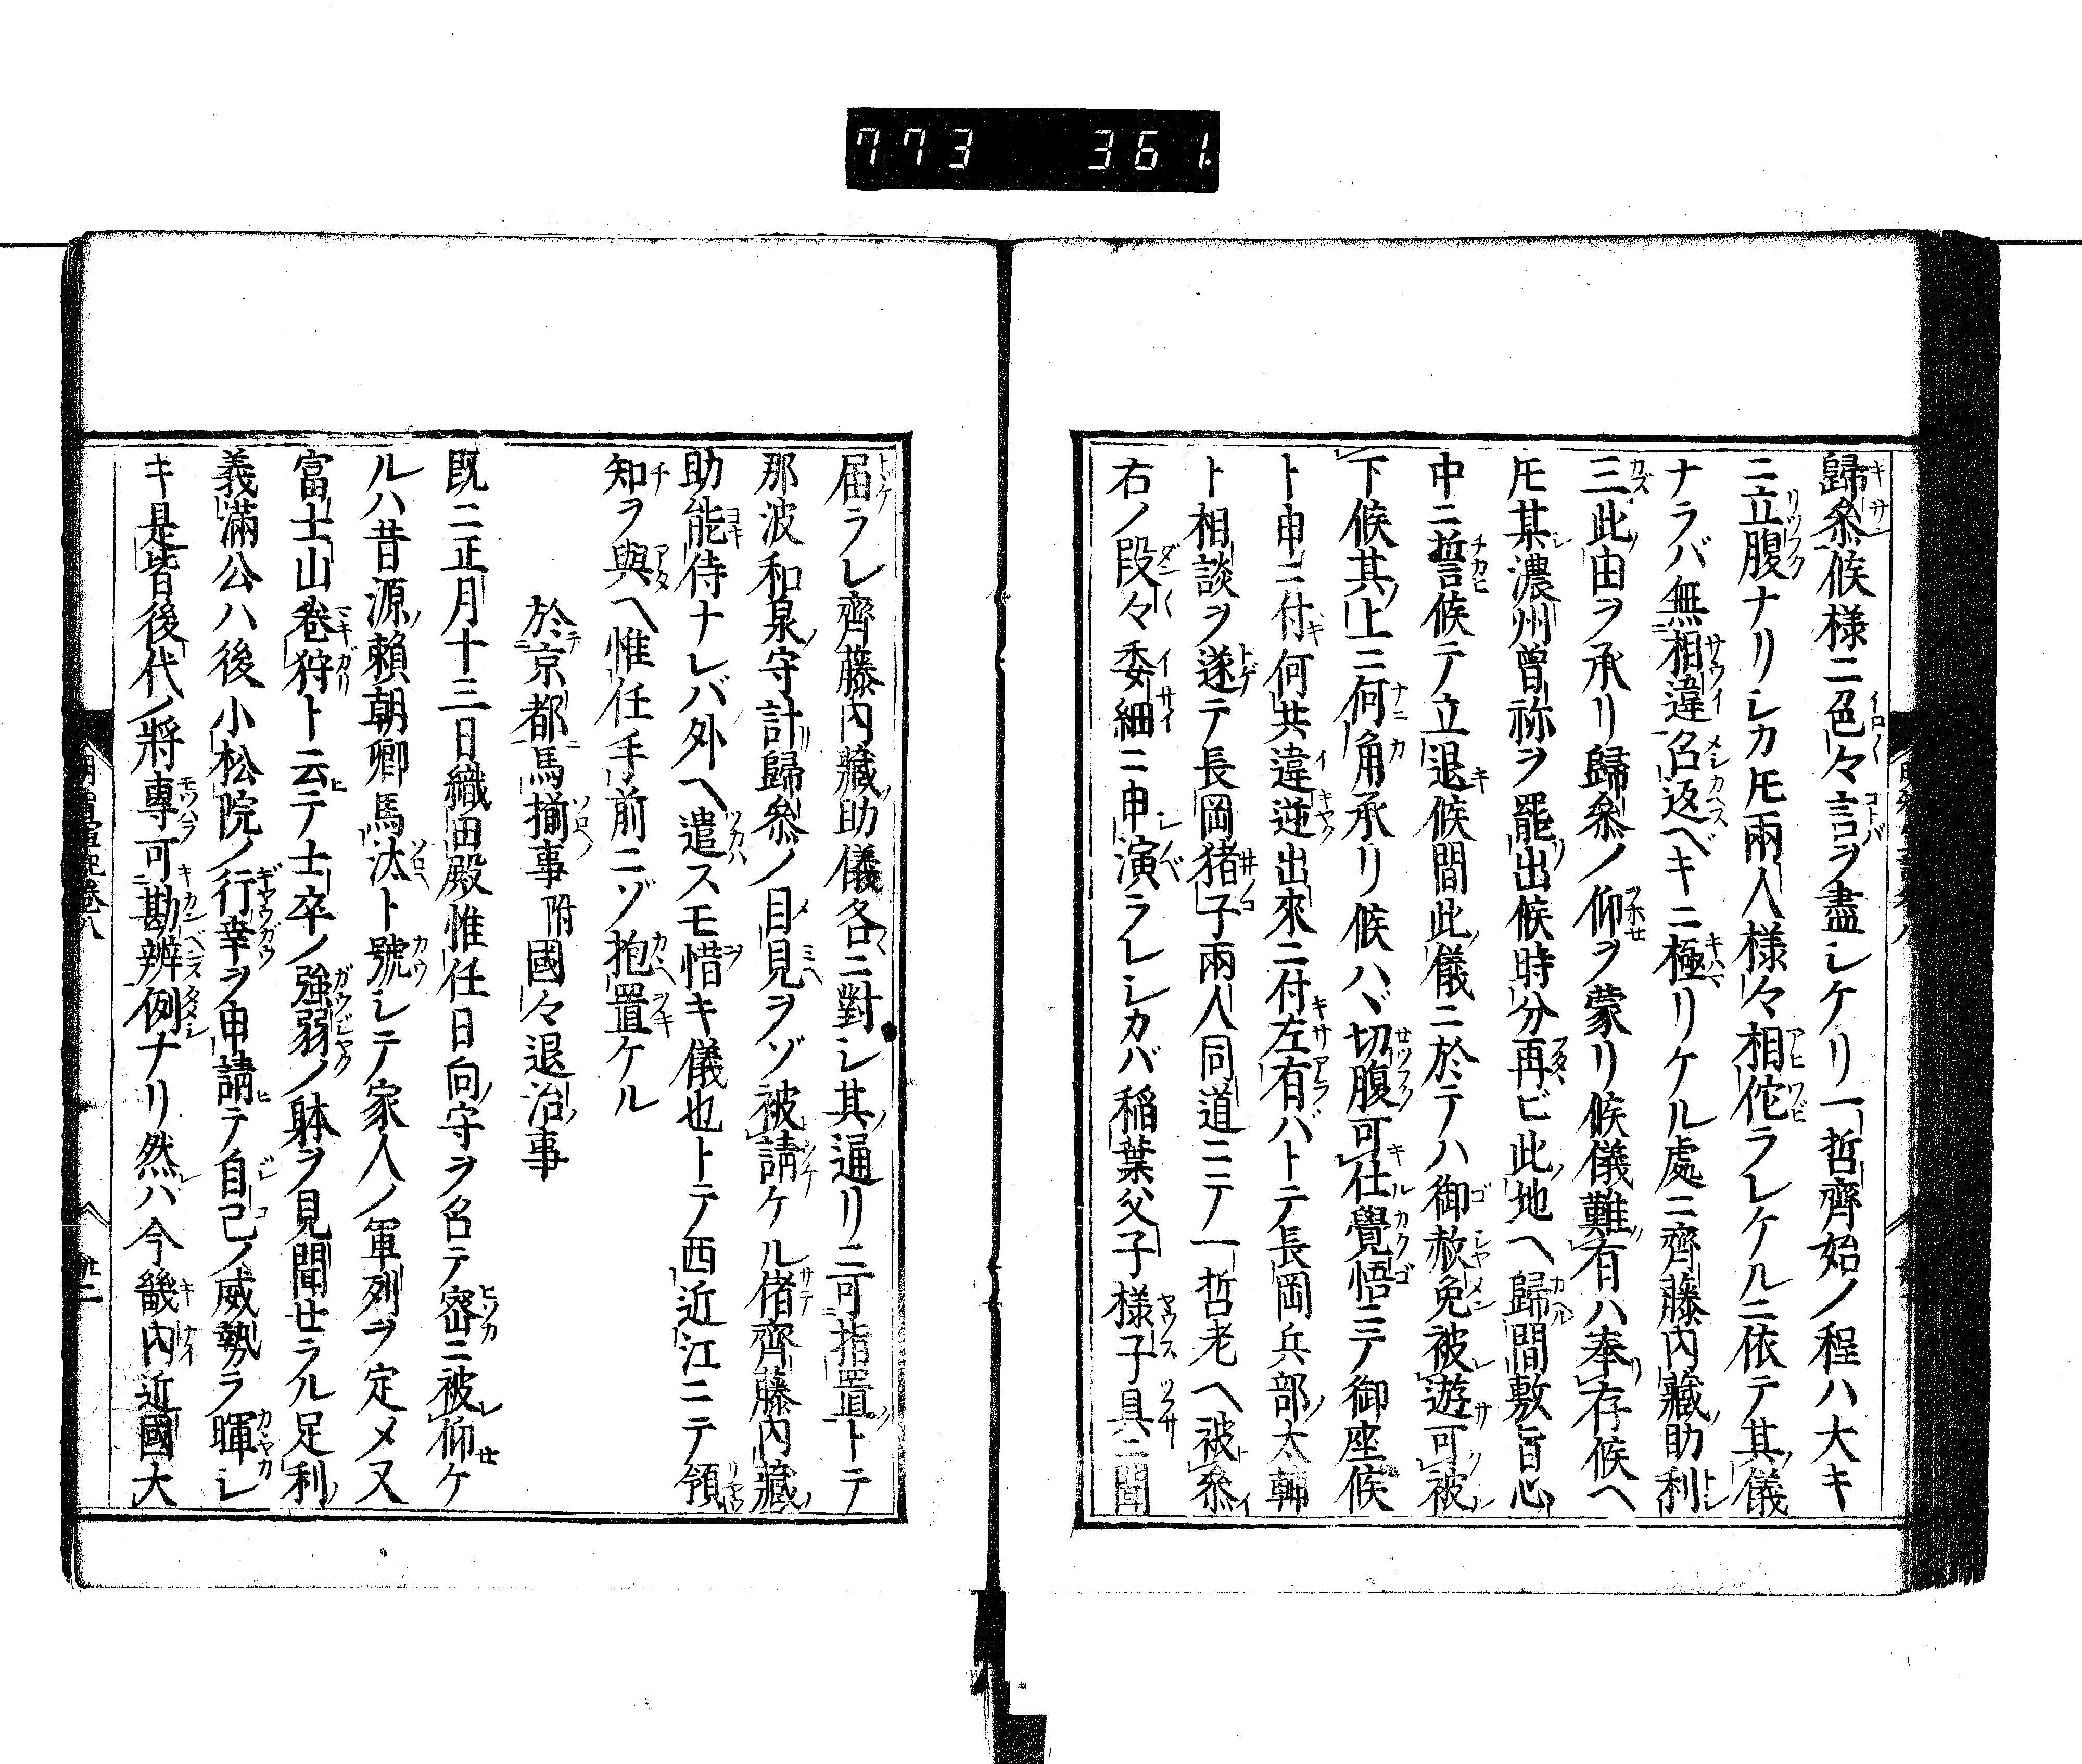 773 361.
歸叅候様ニ色々言ヲ盡シケリ一哲齊始ノ程ハ大キ
ニ立腹ナリシカ𪜈兩人様々相佗ラレケルニ依テ其儀
ナラバ無相違召返ベキニ極リケル處ニ齊藤内藏助利
三此由ヲ承リ歸叅ノ仰ヲ蒙リ候儀難有ハ奉存候ヘ
𪜈某濃州曽祢ヲ罷出候時分再ビ此地ヘ歸間敷旨心
中ニ誓候テ立退候間此儀ニ於テハ御赦免被遊可被
下候其上ニ何角承リ候ハヾ切腹可仕覺悟ニテ御座候
ト申ニ付何共違逆出來ニ付左有バトテ長岡兵部太輔
ト相談ヲ遂テ長岡猪子兩人同道ニテ一哲老ヘ被叅
右ノ段々委細ニ申演ラレシカバ稲葉父子様子具ニ聞
届ラレ齊藤内藏助儀各ニ對シ其通リニ可指置トテ
那波和泉守計歸叅ノ目見ヲゾ被請ケル偖齊藤内藏
助能侍ナレバ外ヘ遣スモ惜キ儀也トテ西近江ニテ領
知ヲ與ヘ惟任手前ニゾ抱置ケル
於京都馬揃事附國々退治事
既ニ正月十三日織田殿惟任日向守ヲ召テ密ニ被仰ケ
ルハ昔源頼朝卿馬汰ト號シテ家人ノ軍列ヲ定メ又
富士山卷狩ト云テ士卒ノ強弱ノ躰ヲ見聞せラル足利
義滿公ハ後小松院ノ行幸ヲ申請テ自己ノ威勢ラ暉シ
キ是皆後代ノ將專可勘辨例ナリ然ハ今畿内近國大